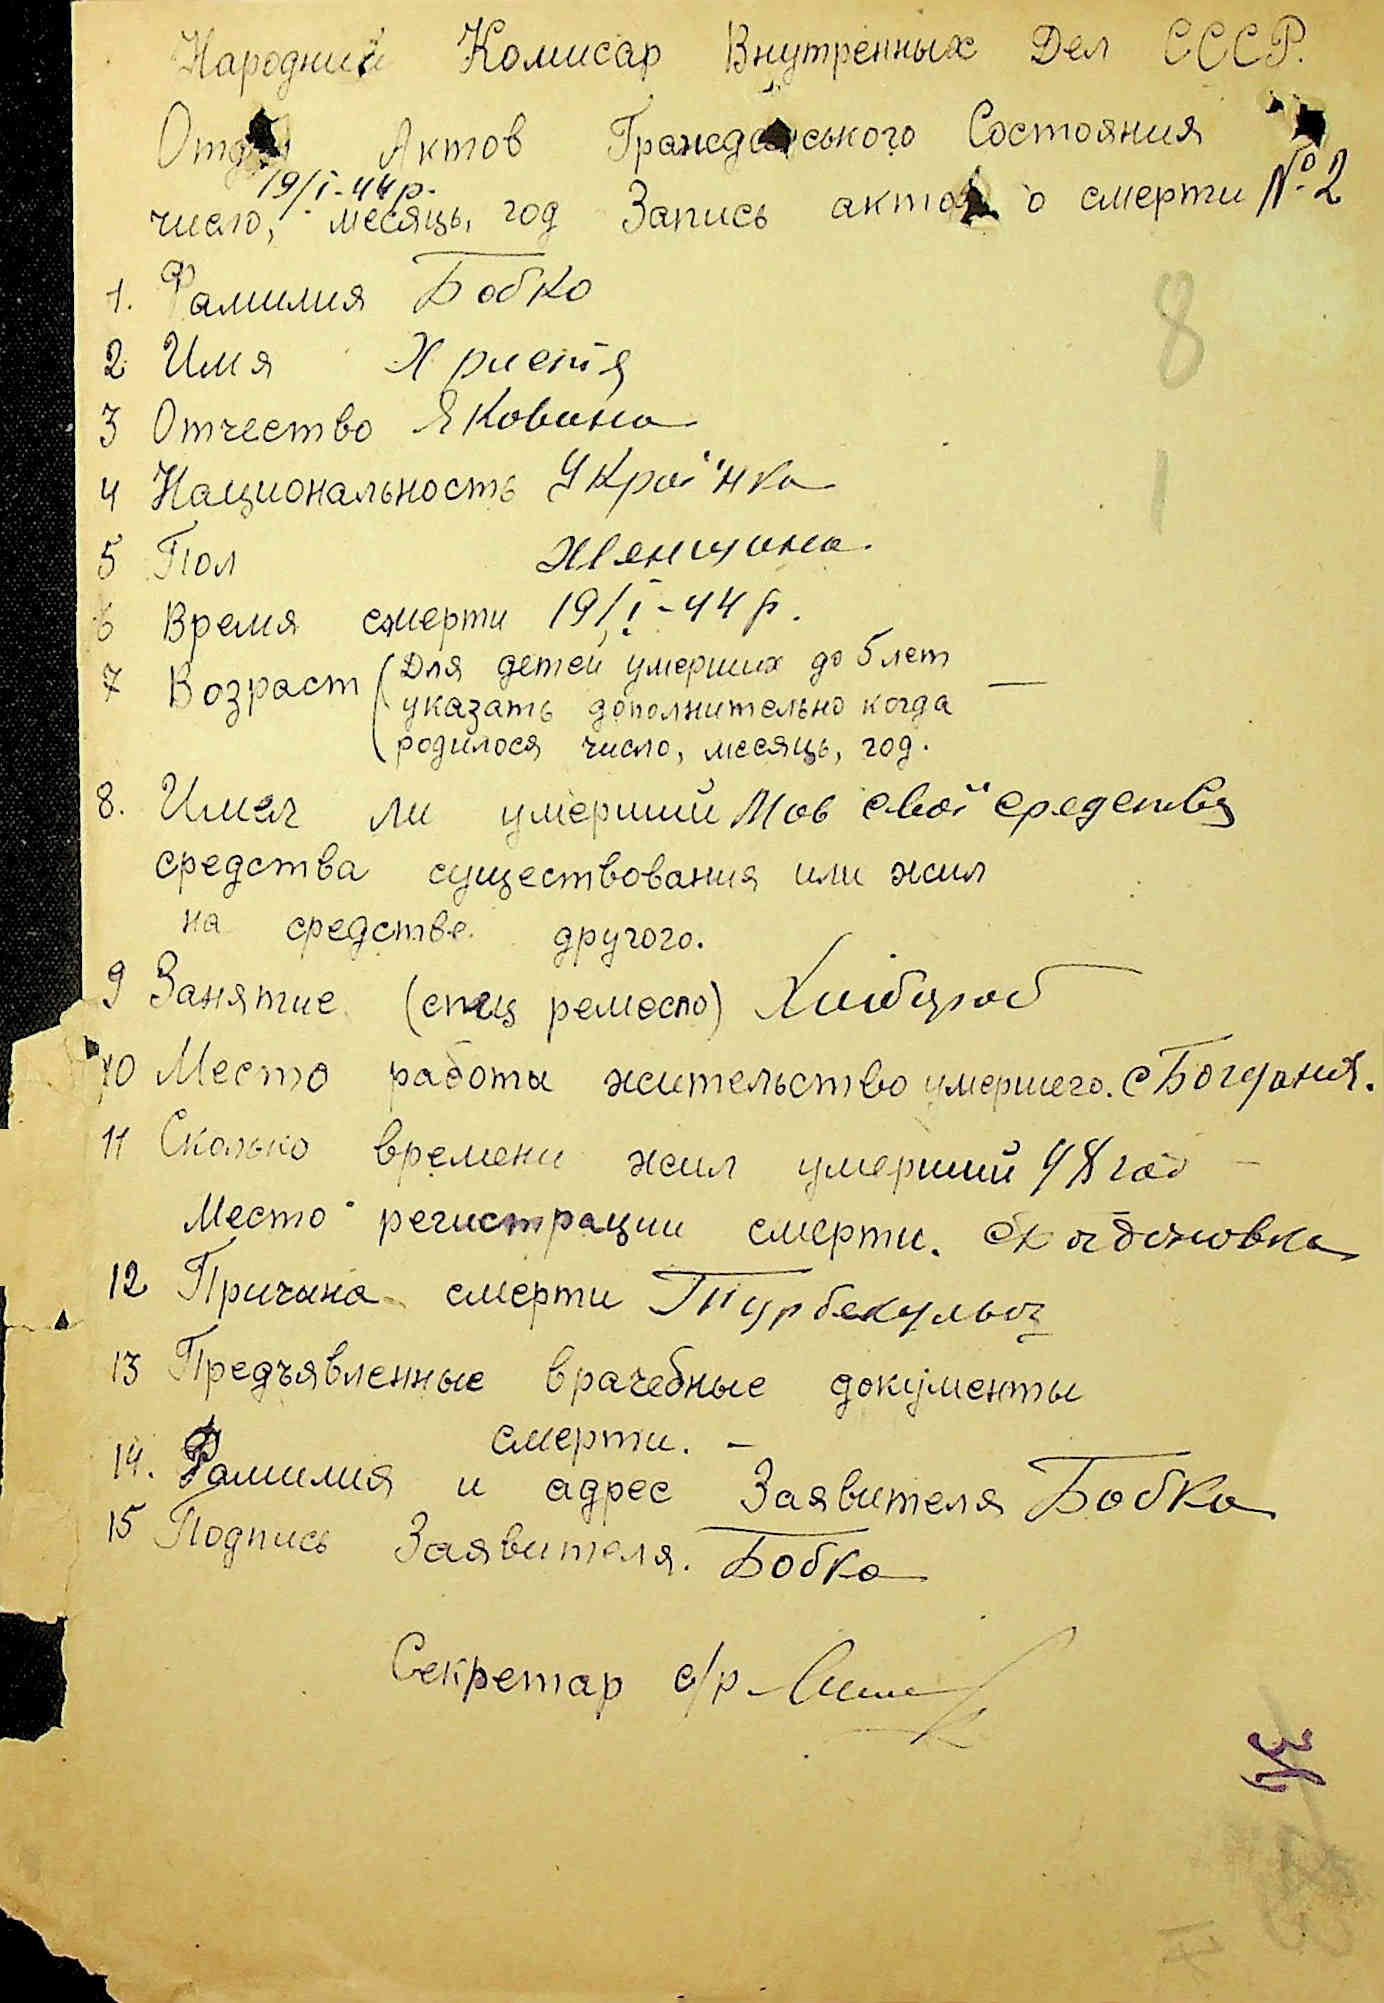 Народний Комисар Внутренных Дел СССР.
Отдел Актов Гражданського Состояния
19/I-44р.
число, месяць, год Запись актов о смерти № 2
1. Фамилия Бобко
2 Имя Христя
3 Отчество Яковна
4 Национальность Українка
5 Пол Женщина.
6 Время смерти 19/I-44р.
7 Возраст (Для детей умерших до 5 лет —
указать дополнительно когда
родилося число, месяць, год.
8. Имел ли умерший Мав свої средства
средства существования или жил
на средстве другого.
9 Занятие (спец ремесло) Хлібороб
10 Место работы жительство умершего. с Богдания.
11 Сколько времени жил умерший 48 год —
Место регистрации смерти.
12 Причина смерти Турбекульоз
13 Предъявленные врачебные документы
смерти. —
14. Фамилия и адрес Заявителя Бобко
15 Подпись Заявителя. Бобко
Секретар с/р
8
1
34